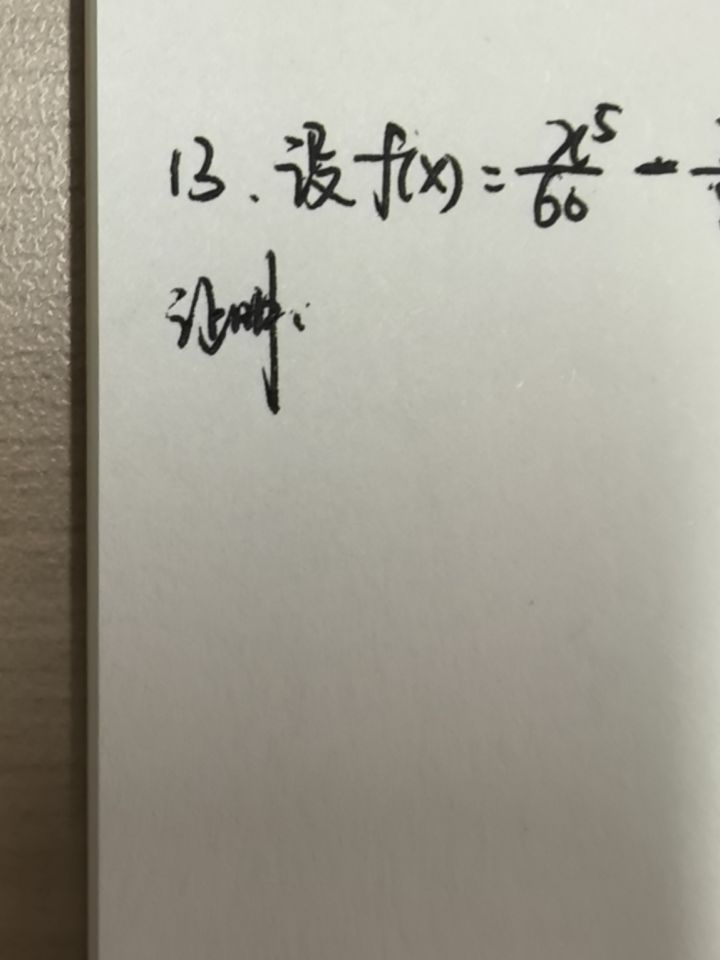 13. 设 f(x) = x⁵/60 -
证明: